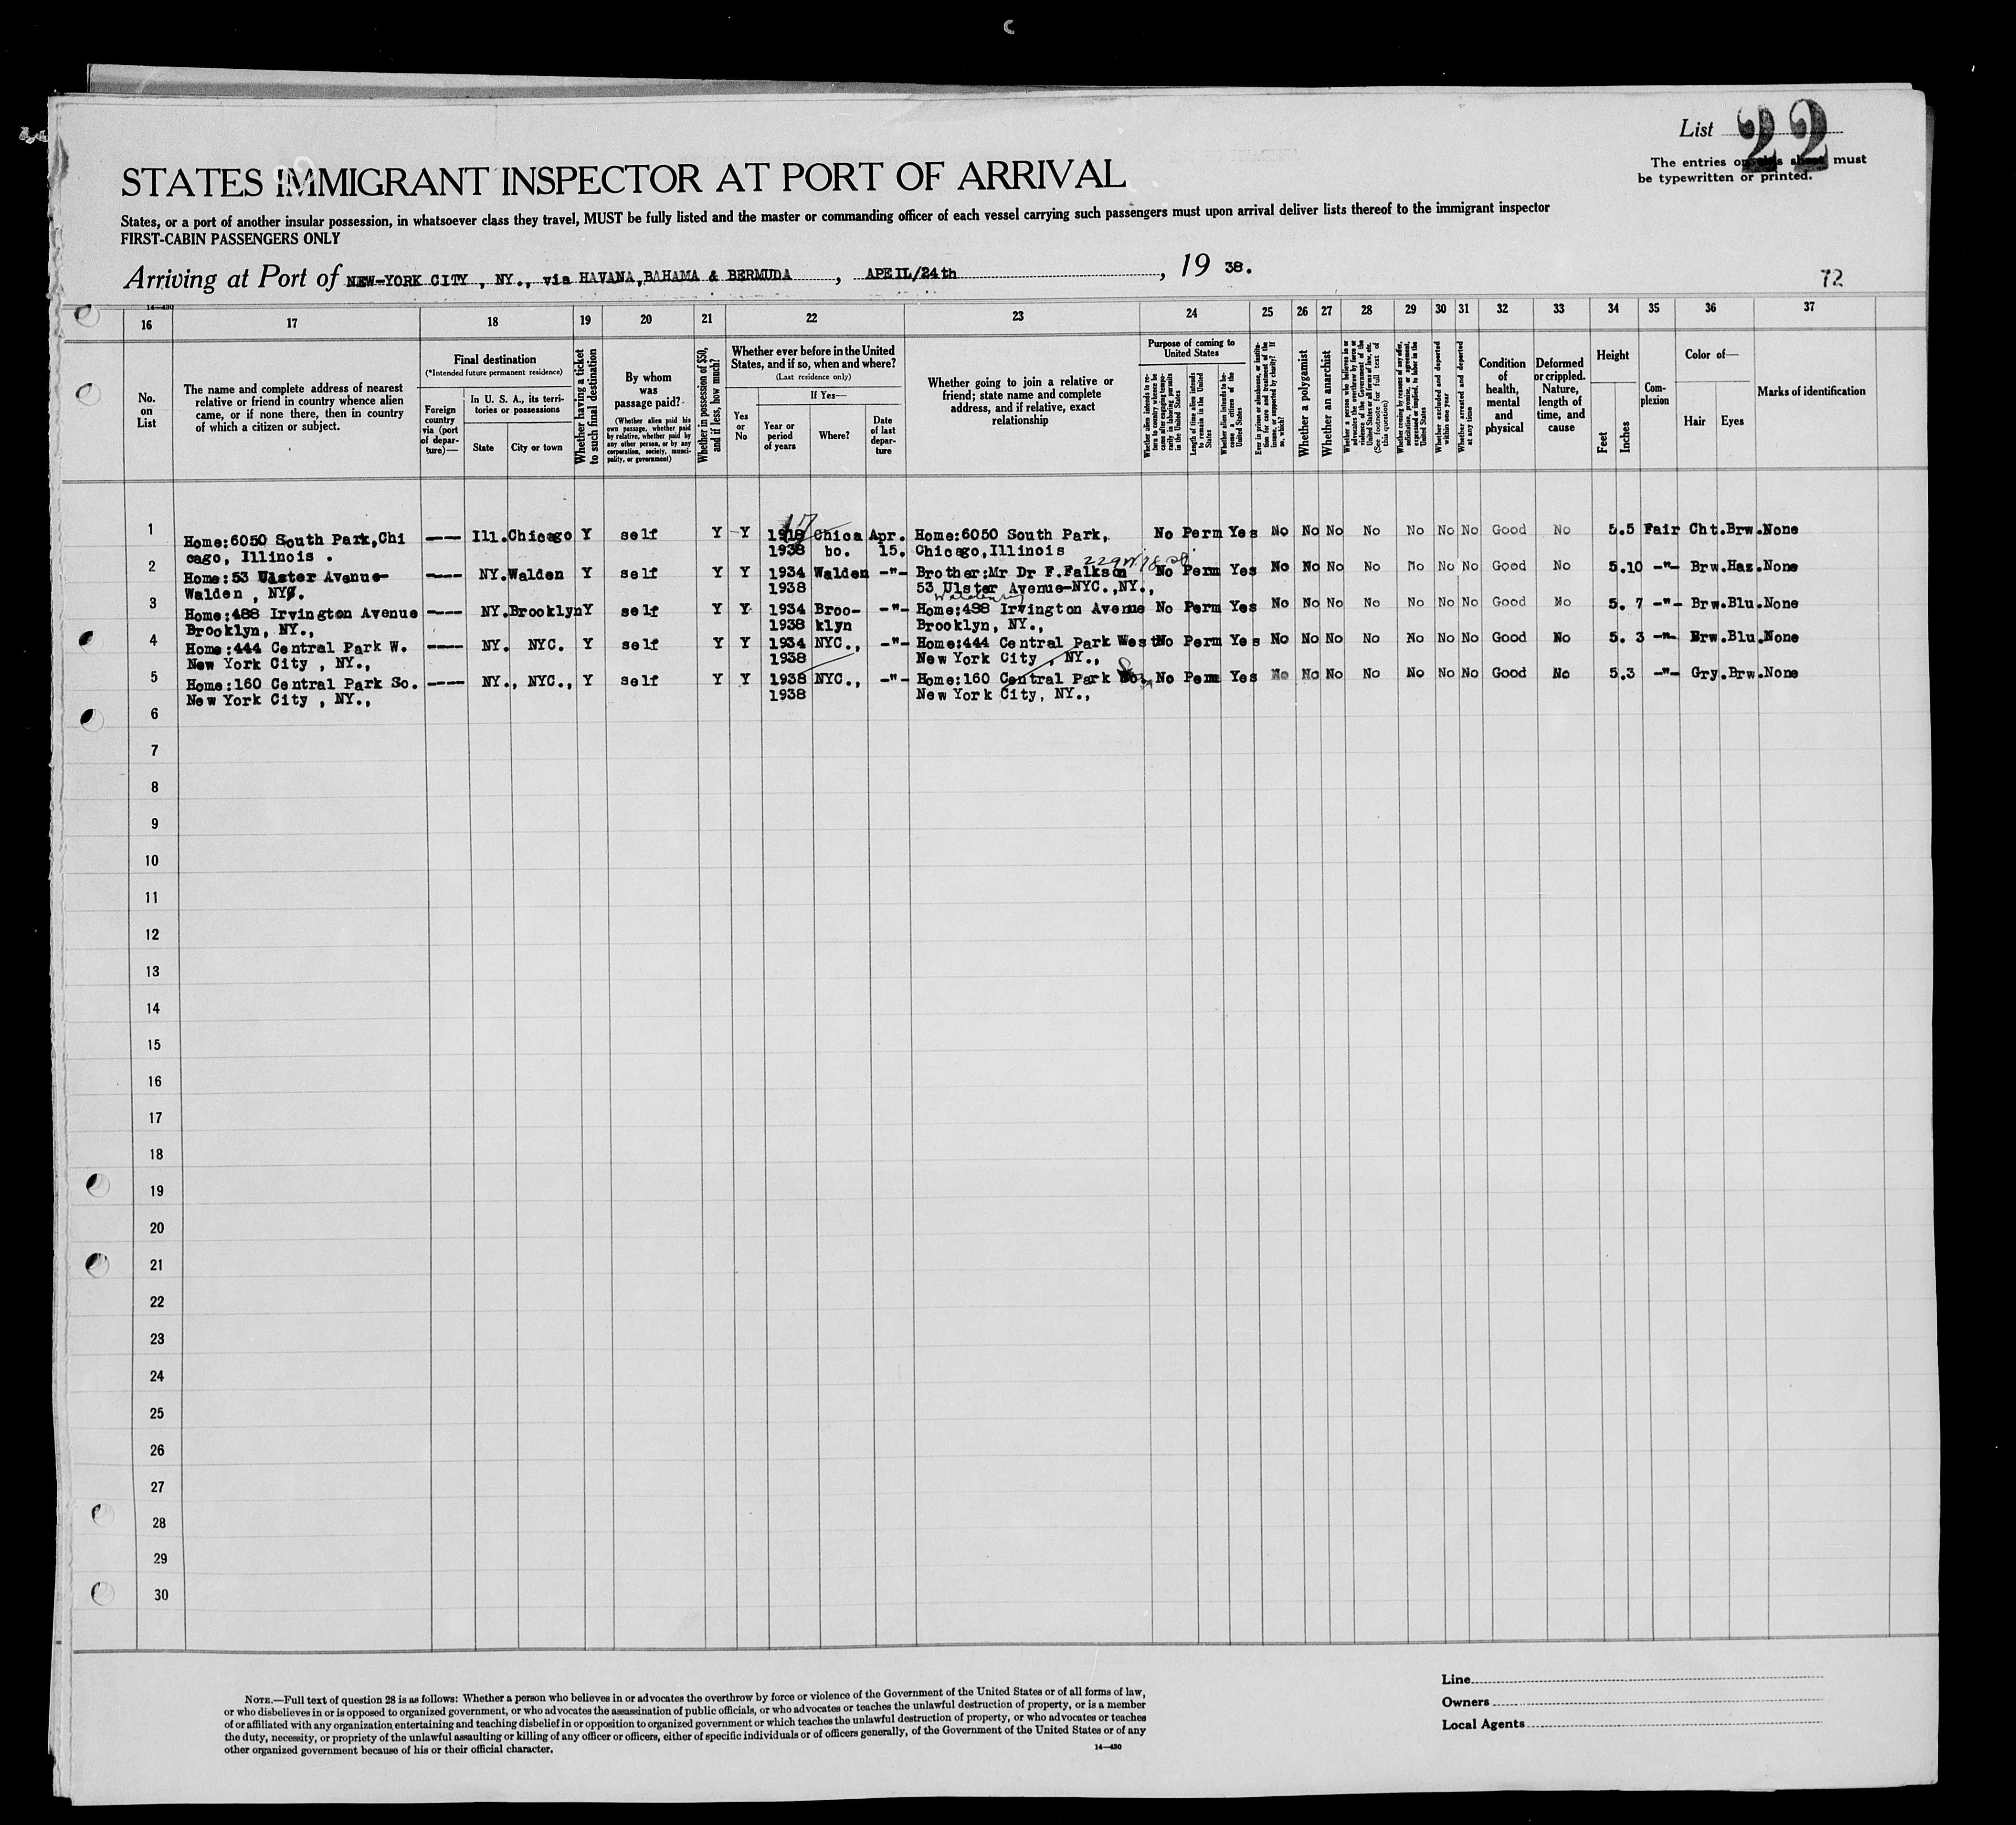 List 22
The entries on this sheet must
be typewritten or printed.
STATES IMMIGRANT INSPECTOR AT PORT OF ARRIVAL
States, or a port of another insular possession, in whatsoever class they travel, MUST be fully listed and the master or commanding officer of each vessel carrying such passengers must upon arrival deliver lists thereof to the immigrant inspector
FIRST-CABIN PASSENGERS ONLY
Arriving at Port of NEW-YORK CITY , NY., via HAVANA,BAHAMA & BERMUDA , APRIL/24th , 19 38.
72
14—430
16 17 18 19 20 21 22 23 24 25 26 27 28 29 30 31 32 33 34 35 36 37
No. on List
The name and complete address of nearest relative or friend in country whence alien came, or if none there, then in country of which a citizen or subject.
Final destination
(*Intended future permanent residence)
Foreign country via (port of departure)—
In U. S. A., its territories or possessions
State
City or town
Whether having a ticket to such final destination
By whom was passage paid?
(Whether alien paid his own passage, whether paid by relative, whether paid by any other person, or by any corporation, society, municipality, or government)
Whether in possession of $50, and if less, how much?
Whether ever before in the United States, and if so, when and where?
(Last residence only)
Yes or No
If Yes—
Year or period of years
Where?
Date of last departure
Whether going to join a relative or friend; state name and complete address, and if relative, exact relationship
Purpose of coming to United States
Whether alien intends to return to country whence he came after engaging temporarily in laboring pursuits in the United States
Length of time alien intends to remain in the United States
Whether alien intends to become a citizen of the United States
Ever in prison or almshouse, or institution for care and treatment of the insane, or supported by charity? If so, which?
Whether a polygamist
Whether an anarchist
Whether a person who believes in or advocates the overthrow by force or violence of the Government of the United States or all forms of law, etc. (See footnote for full text of this question)
Whether coming by reason of any offer, solicitation, promise, or agreement, expressed or implied, to labor in the United States
Whether excluded and deported within one year
Whether arrested and deported at any time
Condition of health, mental and physical
Deformed or crippled. Nature, length of time, and cause
Height
Feet
Inches
Complexion
Color of—
Hair
Eyes
Marks of identification
1 Home:6050 South Park,Chi ---- Ill. Chicago Y self Y Y 1918 17 Chica Apr. Home:6050 South Park, No Perm Yes No No No No No No No Good No 5.5 Fair Cht. Brw. None
cago, Illinois . 1938 bo. 15. Chicago,Illinois
2 Home:53 Ulster Avenue- ---- NY. Walden Y self Y Y 1934 Walden -"- Brother:Mr Dr F.Falkson No Perm Yes No No No No No No No Good No 5.10 -"- Brw. Haz. None
Walden , NY. 1938 53 Ulster Avenue-NYC.,NY.,
3 Home:488 Irvington Avenue ---- NY. Brooklyn Y self Y Y 1934 Broo- -"- Home:488 Irvington Avenue No Perm Yes No No No No No No No Good No 5. 7 -"- Brw. Blu. None
Brooklyn, NY., 1938 klyn Brooklyn, NY.,
4 Home:444 Central Park W. ---- NY. NYC. Y self Y Y 1934 NYC., -"- Home:444 Central Park West No Perm Yes No No No No No No No Good No 5. 3 -"- Brw. Blu. None
New York City , NY., 1938 New York City , NY.,
5 Home:160 Central Park So. ---- NY., NYC., Y self Y Y 1938 NYC., -"- Home:160 Central Park So. No Perm Yes No No No No No No No Good No 5.3 -"- Gry. Brw. None
New York City , NY., 1938 New York City, NY.,
6
7
8
9
10
11
12
13
14
15
16
17
18
19
20
21
22
23
24
25
26
27
28
29
30
NOTE.—Full text of question 28 is as follows: Whether a person who believes in or advocates the overthrow by force or violence of the Government of the United States or of all forms of law,
or who disbelieves in or is opposed to organized government, or who advocates the assassination of public officials, or who advocates or teaches the unlawful destruction of property, or is a member
of or affiliated with any organization entertaining and teaching disbelief in or opposition to organized government or which teaches the unlawful destruction of property, or who advocates or teaches
the duty, necessity, or propriety of the unlawful assaulting or killing of any officer or officers, either of specific individuals or of officers generally, of the Government of the United States or of any
other organized government because of his or their official character.
14—430
Line
Owners
Local Agents